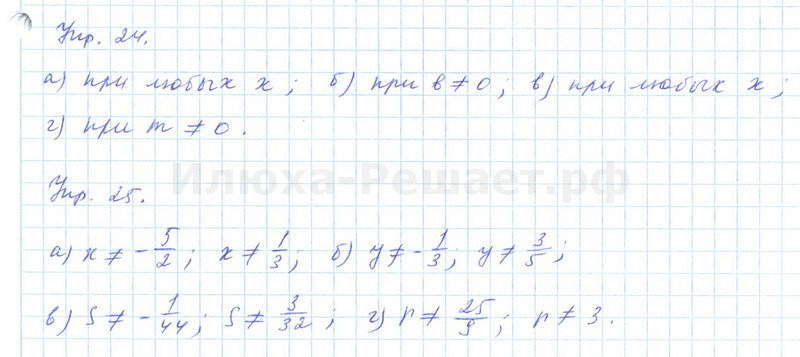 Упр. 24.
а) при любых x; б) при в ≠ 0; в) при любых x;
г) при m ≠ 0.
Илюха-Решает.рф
Упр. 25.
а) x ≠ -5/2; x ≠ 1/3; б) y ≠ -1/3; y ≠ 3/5;
в) S ≠ -1/44; S ≠ 3/32; г) r ≠ 25/9; r ≠ 3.